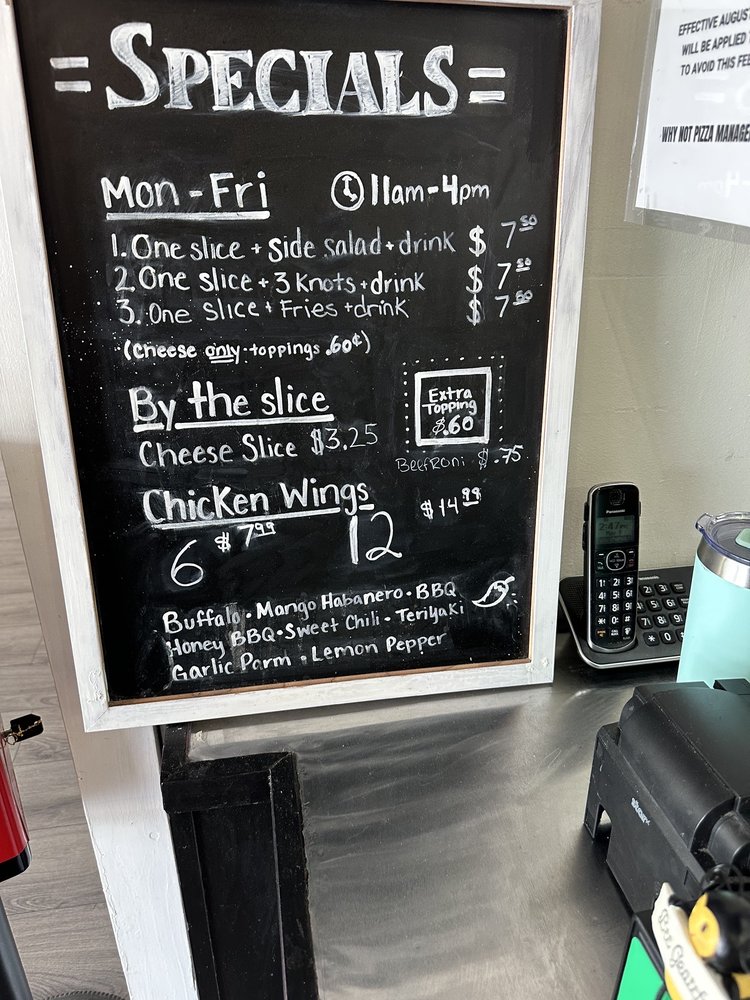 = SPECIALS =
Mon-Fri 11am-4pm
1. One slice + side salad + drink $7.50
2. One slice + 3 Knots + drink $7.50
3. One slice + Fries + drink $7.50
(cheese only-toppings .60¢)
By the slice
Cheese Slice $3.25
Extra
Topping
$.60
Beefroni $.75
Chicken Wings
6 $7.99 12 $14.99
Buffalo • Mango Habanero • BBQ
Honey BBQ • Sweet Chili • Teriyaki
Garlic Parm • Lemon Pepper
EFFECTIVE AUGUS
WILL BE APPLIED
TO AVOID THIS FEE
WHY NOT PIZZA MANAGE
Panasonic
2:47
Panasonic
star